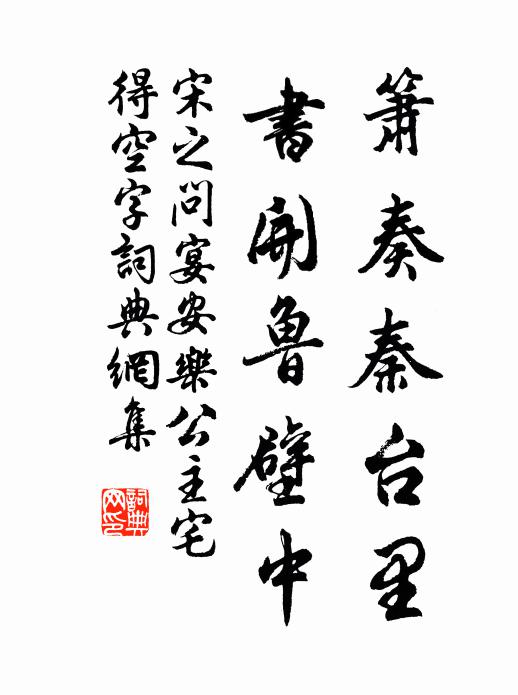 簫奏秦台里
書開魯壁中
宋之問宴安樂公主宅
得空字詞典網集
詞典网印